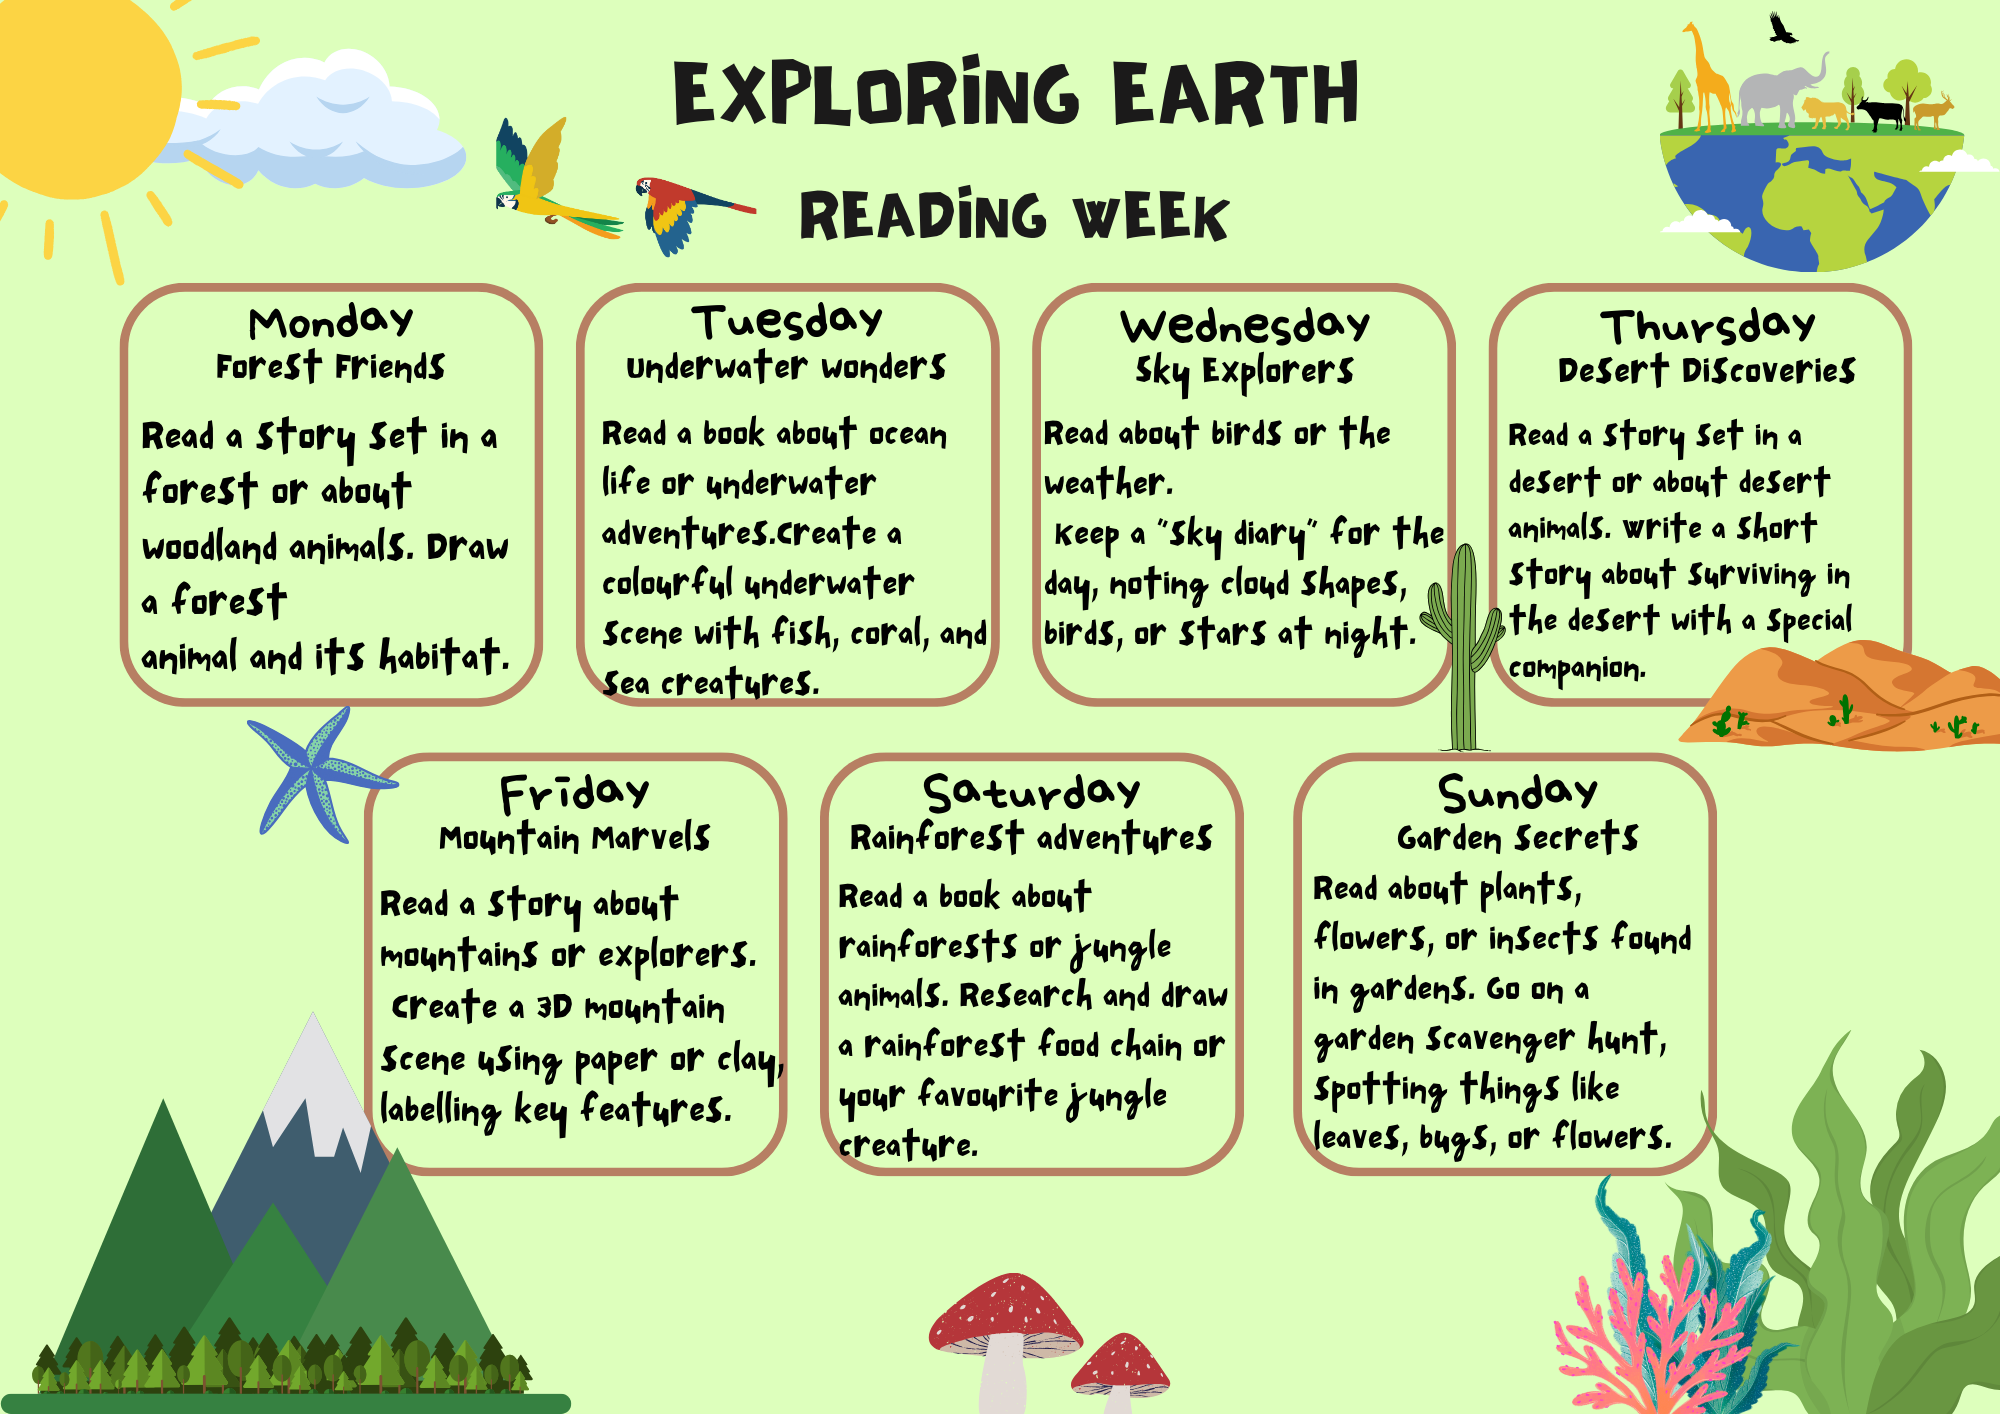 EXPLORING EARTH
READING WEEK
Monday
Forest Friends
Read a story set in a
forest or about
woodland animals. Draw
a forest
animal and its habitat.
Tuesday
Underwater wonders
Read a book about ocean
life or underwater
adventures.Create a
colourful underwater
scene with fish, coral, and
sea creatures.
Wednesday
Sky Explorers
Read about birds or the
weather.
Keep a "sky diary" for the
day, noting cloud shapes,
birds, or stars at night.
Thursday
Desert Discoveries
Read a story set in a
desert or about desert
animals. Write a short
story about surviving in
the desert with a special
companion.
Friday
Mountain Marvels
Read a story about
mountains or explorers.
Create a 3D mountain
scene using paper or clay,
labelling key features.
Saturday
Rainforest adventures
Read a book about
rainforests or jungle
animals. Research and draw
a rainforest food chain or
your favourite jungle
creature.
Sunday
Garden Secrets
Read about plants,
flowers, or insects found
in gardens. Go on a
garden scavenger hunt,
spotting things like
leaves, bugs, or flowers.